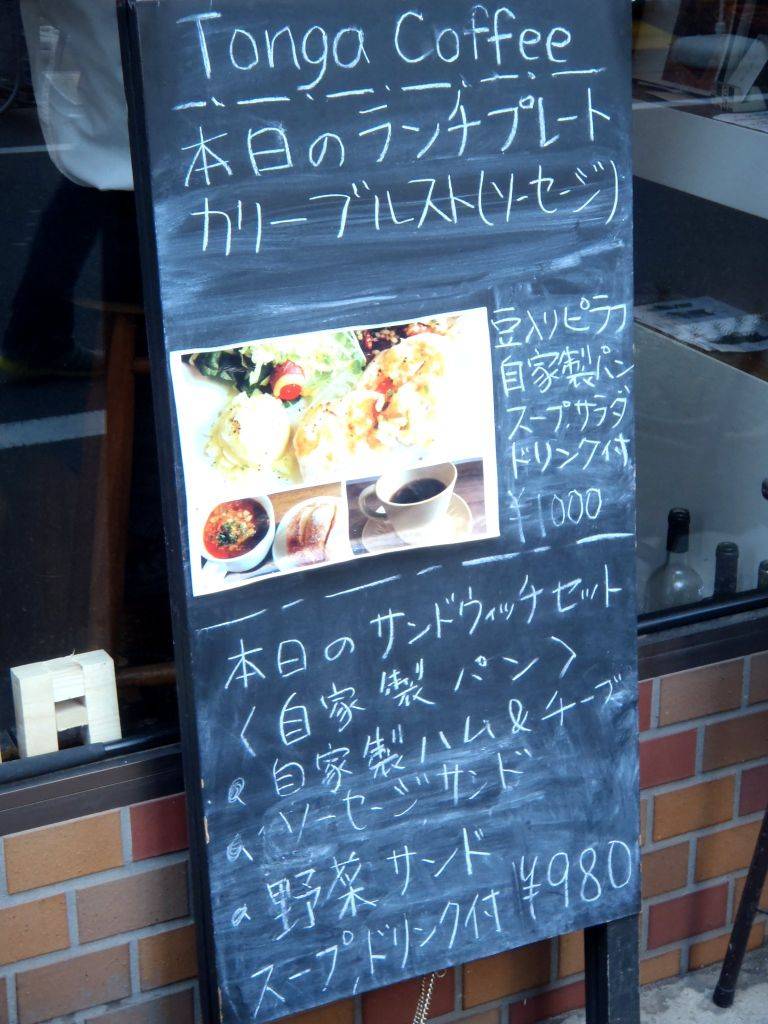 Tonga Coffee
本日のランチプレート
カリーブルスト(ソーセージ)
豆入りピラフ
自家製パン
スープ.サラダ
ドリンク付
¥1000
本日のサンドウィッチセット
〈自家製パン〉
自家製ハム&チーズ
ソーセージサンド
野菜サンド
¥980
スープ.ドリンク付